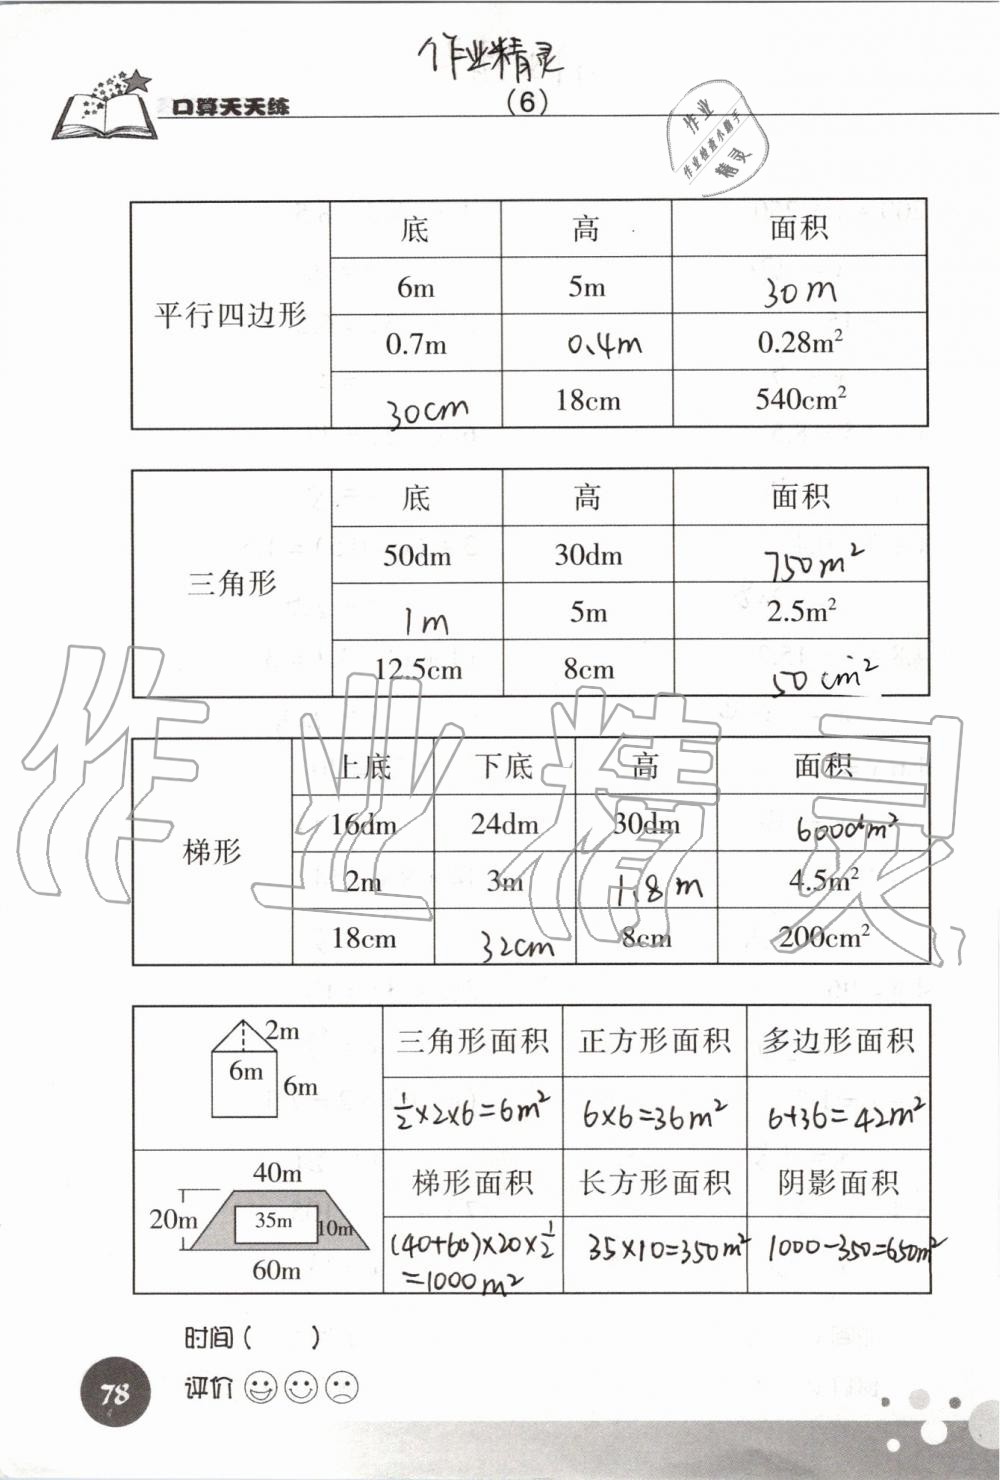 作业精灵
口算天天练
(6)
作业
作业检查小助手
精灵
底 高 面积
平行四边形
6m 5m 30m
0.7m 0.4m 0.28m²
30cm 18cm 540cm²
底 高 面积
三角形
50dm 30dm 750m²
1m 5m 2.5m²
12.5cm 8cm 50cm²
上底 下底 高 面积
梯形
16dm 24dm 30dm 600dm²
2m 3m 1.8m 4.5m²
18cm 32cm 8cm 200cm²
作业精灵
2m
6m
6m
三角形面积 正方形面积 多边形面积
½×2×6=6m² 6×6=36m² 6+36=42m²
40m
20m 35m 10m
60m
梯形面积 长方形面积 阴影面积
(40+60)×20×½ 35×10=350m² 1000-350=650m²
=1000m²
时间( )
评价
78